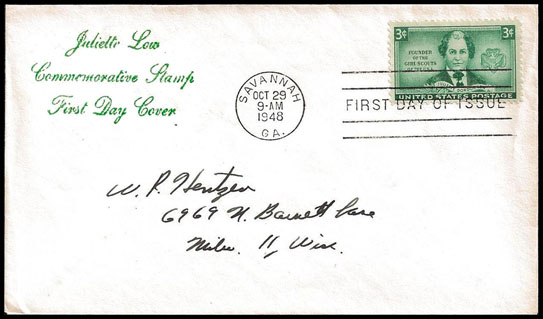 Juliette Low
Commemorative Stamp
First Day Cover
SAVANNAH
OCT 29
9-AM
1948
GA.
3¢ 3¢
FOUNDER
OF THE
GIRL SCOUTS
OF U.S.A.
UNITED STATES POSTAGE
FIRST DAY OF ISSUE
W. P. Hentzen
6969 N. Barnett Lane
Milw. 11, Wisc.